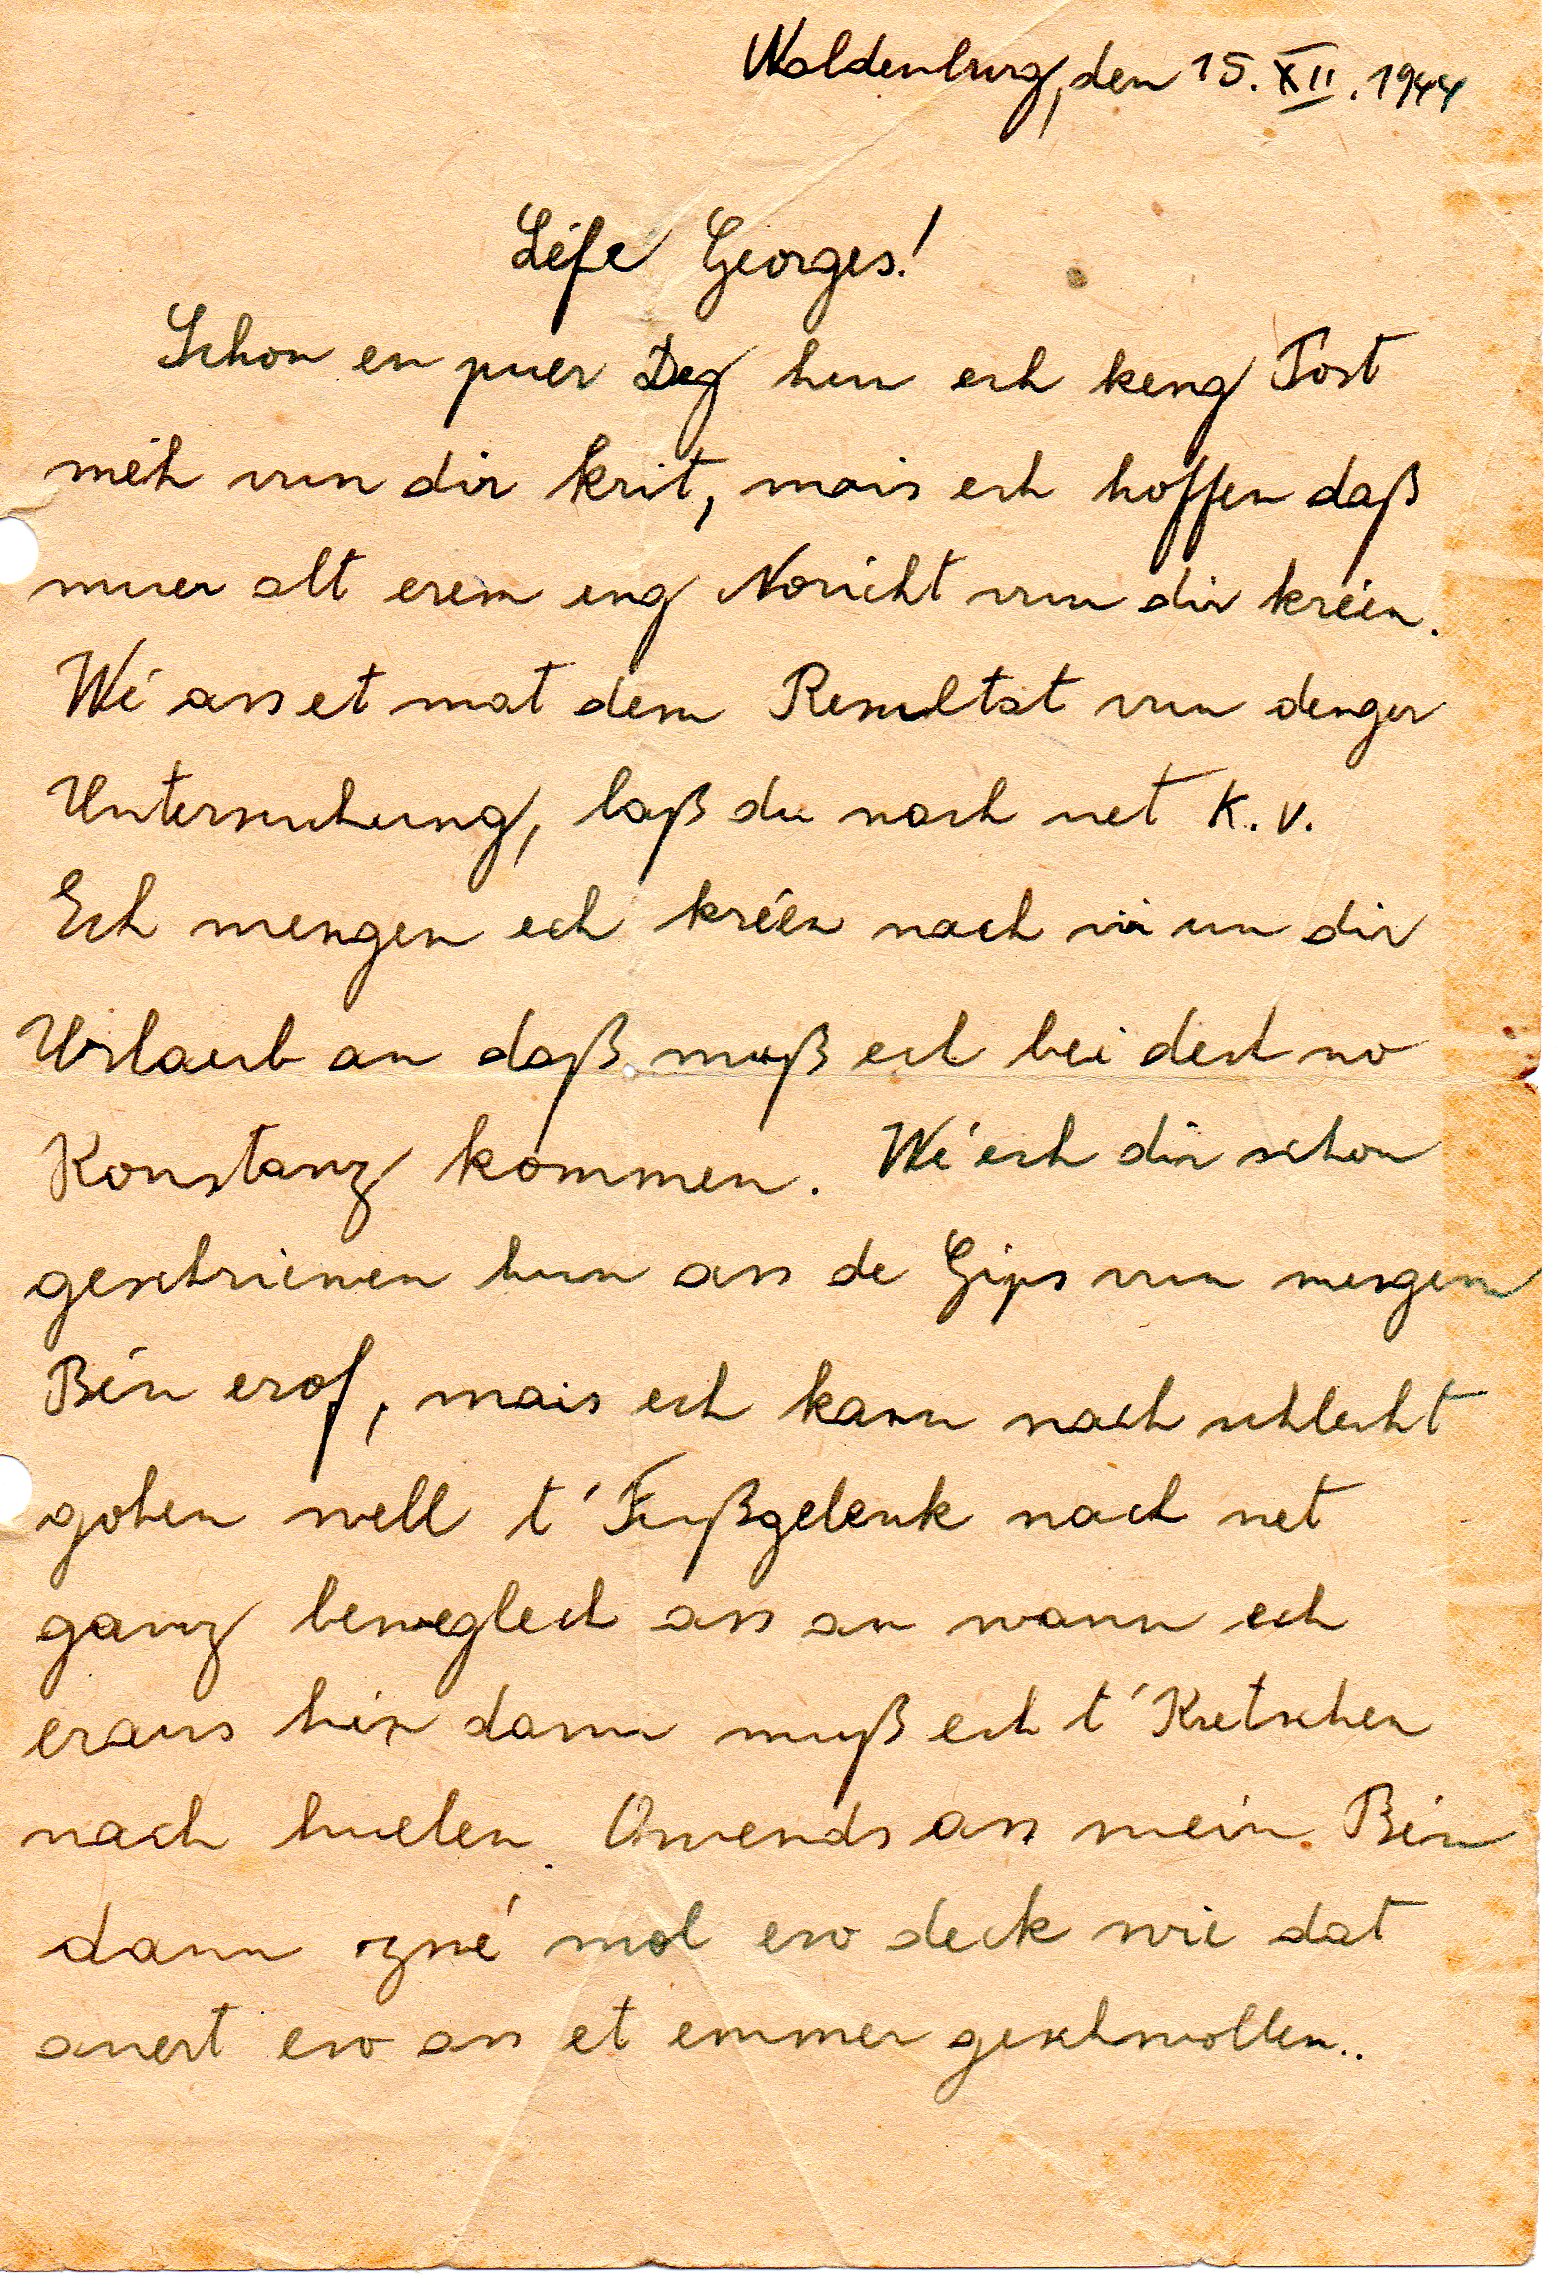 Waldenburg, den 15. XII. 1944
Léfe Georges!
Schon en puer Deg hun ech keng Post
méh vun dir krit, mais ech hoffen daß
muer alt erem eng Noricht vun dir kréien.
Wé ass et mat dem Resultat vun denger
Untersuchung, laß du noch net K.v.
Ech mengen ech kréien nach vir un dir
Urlaub an daß muß ech bei dech no
Konstanz kommen. Wé ech dir schon
geschriewen hun ass de Gips vun mengem
Bén erof, mais ech kann nach schlecht
gohen well t'Fußgelenk nach net
ganz beweglech ass an wann ech
eraus hin dann muß ech t'Kretschen
nach huelen. Owends ass mein Bén
dann zwé mol eso deck wie dat
anert eso ass et emmer geschwollen..